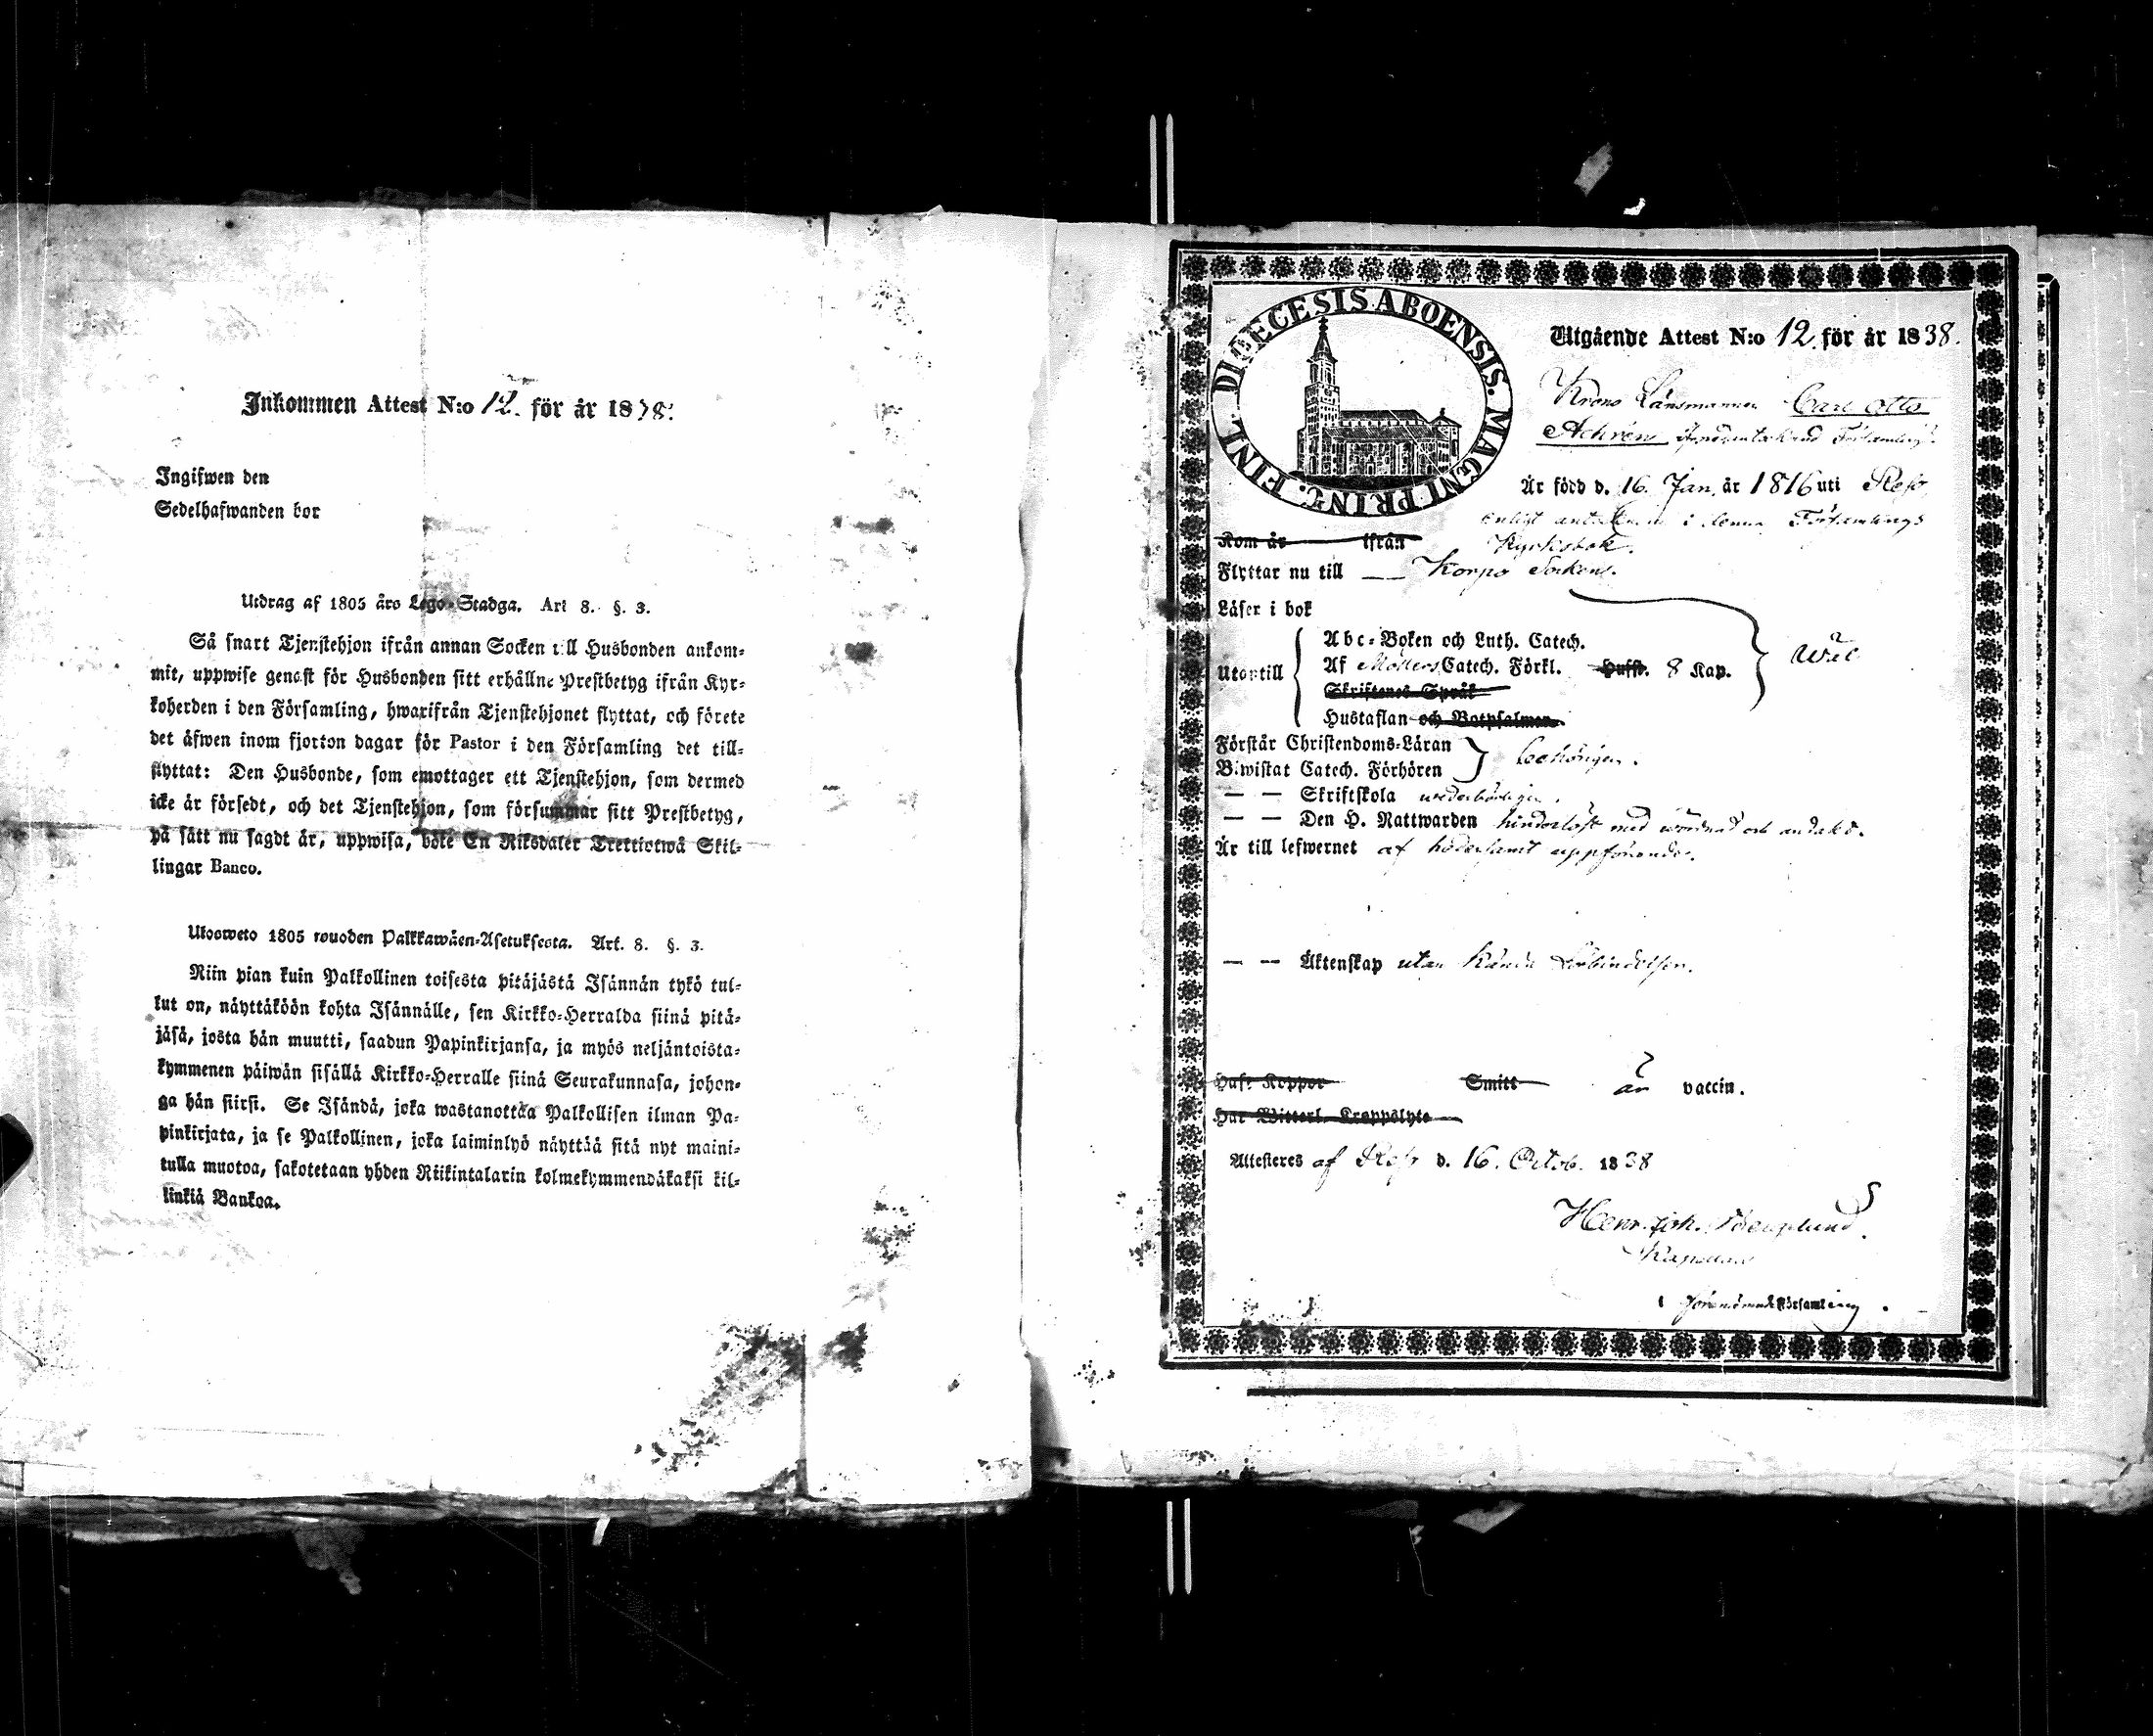 Inkommen Attest N:o 12. för år 1838.
Ingifwen den
Sedelhafwanden bor
Utdrag af 1805 års Lego-Stadga. Art 8. §. 3.
Så snart Tjenstehjon ifrån annan Socken till Husbonden ankom-
mit, uppwise genast för Husbonden sitt erhållne Prestbetyg ifrån Kyr-
koherden i den Församling, hwarifrån Tjenstehjonet flyttat, och förete
det äfwen inom fjorton dagar för Pastor i den Församling det till-
flyttat: Den Husbonde, som emottager ett Tjenstehjon, som dermed
icke är försedt, och det Tjenstehjon, som försummar sitt Prestbetyg,
på sätt nu sagdt är, uppwisa, böte En Riksdaler Trettiotwå Skil-
lingar Banco.
Ulosweto 1805 wuoden Palkkawäen-Asetuksesta. Art. 8. §. 3.
Niin pian kuin Palkollinen toisesta pitäjästä Isännän tykö tul-
lut on, näyttäköön kohta Isännälle, sen Kirkko-Herralda siinä pitä-
jäsä, josta hän muutti, saadun Papinkirjansa, ja myös neljäntoista-
kymmenen päiwän sisällä Kirkko-Herralle siinä Seurakunnasa, johon-
ga hän siirsi. Se Isändä, joka wastanottaa Palkollisen ilman Pa-
pinkirjata, ja se Palkollinen, joka laiminlyö näyttää sitä nyt maini-
tulla muotoa, sakotetaan yhden Riikintalarin kolmekymmendäkaksi kil-
linkiä Bankoa.
DIOECESIS ABOENSIS. MAGNI PRINC. FINL.
Utgående Attest N:o 12 för år 1838.
Krono Länsmannen Carl Otto
Achrén Församling
Är född d. 16. Jan. år 1816 uti Resö
enligt i denna Församlings
Kyrkobok.
Kom år ifrån
Flyttar nu till — Korpo Socken.
Läser i bok
Utantill
Abc-Boken och Luth. Catech.
Af Möllers Catech. Förkl. Hufst. 8 Kap.
Skriftenes Språk
Hustaflan och Botpsalmer
wäl
Förstår Christendoms-Läran
Biwistat Catech. Förhören
behörigen.
— — Skriftskola wederbörligen.
— — Den H. Nattwarden hinderlöst med wördnad och andakt.
Är till lefwernet af hedersamt uppförande.
— — Äktenskap utan kända förbindelser.
Haft Koppor Smitt är vaccin.
Har Witterl. Kroppslyte
Attesteras af Resö d. 16. Octob. 1838
Henr. Joh.
Kapellan
i förenämnde Församling.